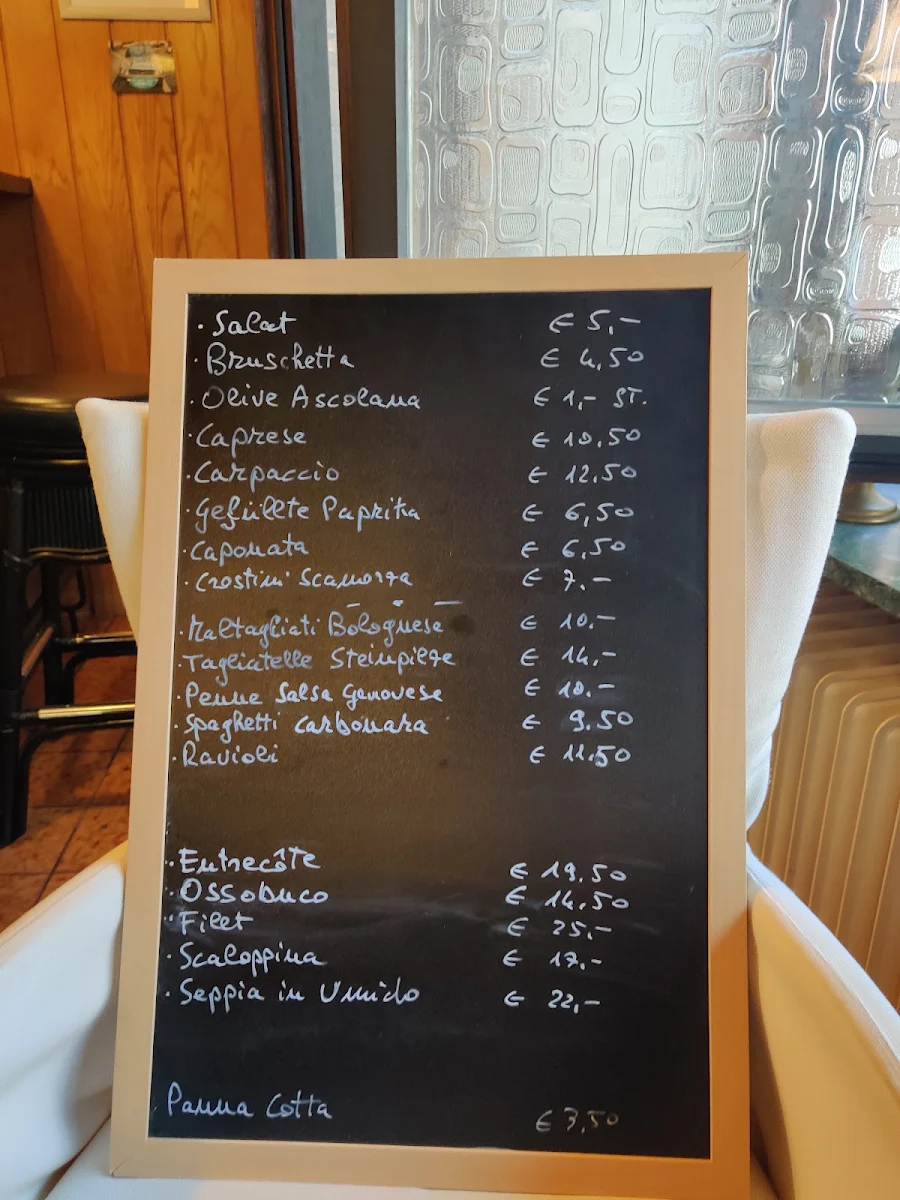 · Salat € 5,-
· Bruschetta € 4,50
· Olive Ascolana € 1,- ST.
· Caprese € 10,50
· Carpaccio € 12,50
· Gefüllte Paprika € 6,50
· Caponata € 6,50
· Crostini Scamorza € 7.-
· Maltagliati Bolognese € 10.-
· Tagliatelle Steinpilze € 14,-
· Penne Salsa Genovese € 10.-
· Spaghetti Carbonara € 9.50
· Ravioli € 11.50
· Entrecôte € 19.50
· Ossobuco € 14,50
· Filet € 25,-
· Scaloppina € 17.-
· Seppia in Umido € 22,-
Panna Cotta € 3,50